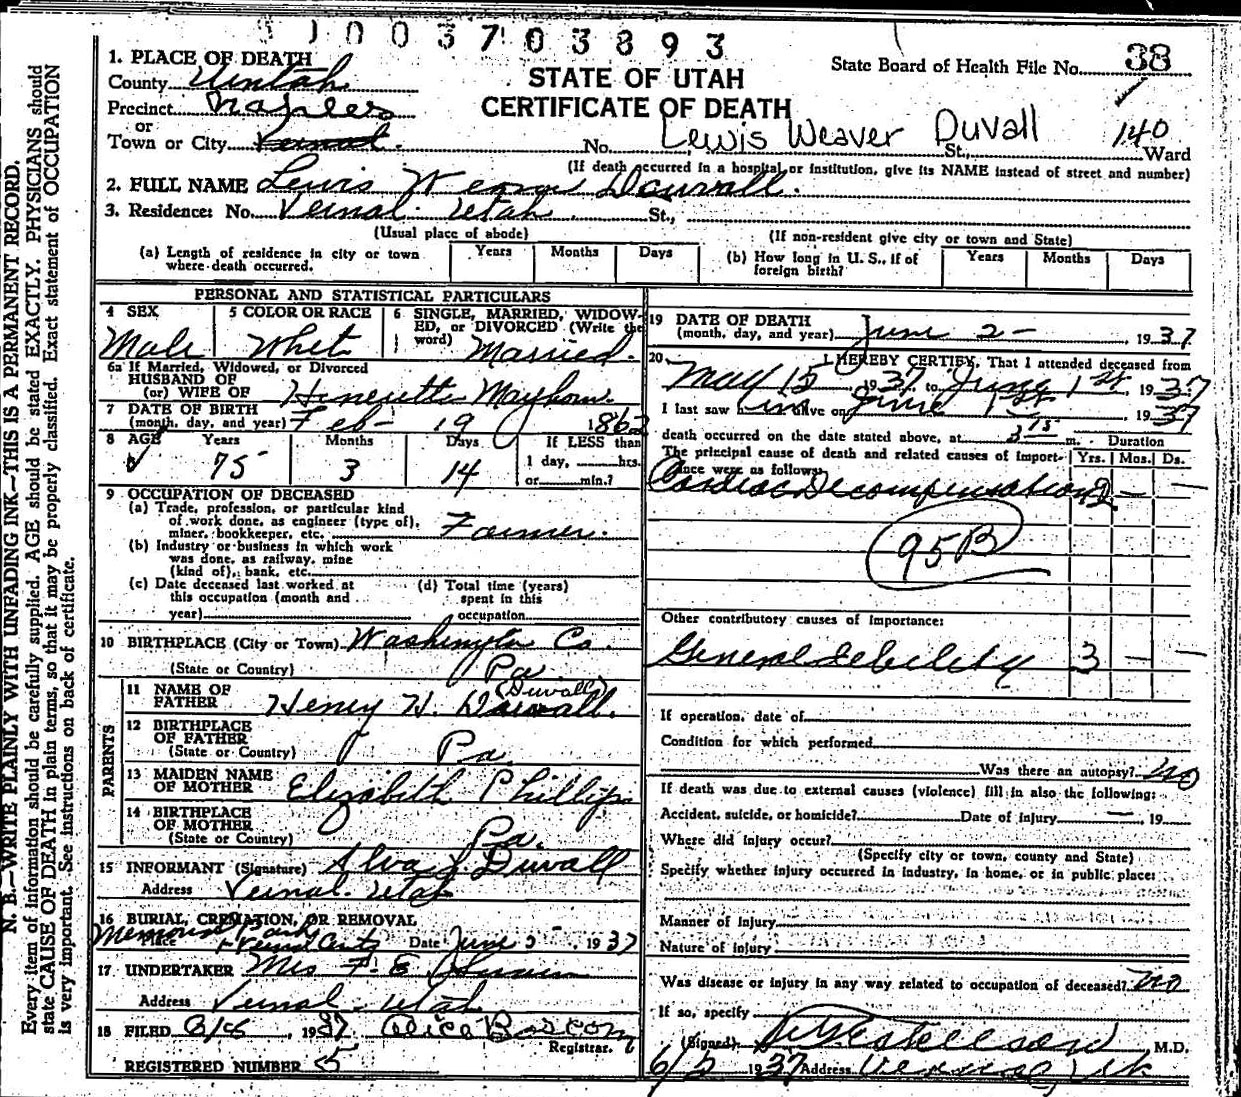 N. B.—WRITE PLAINLY WITH UNFADING INK—THIS IS A PERMANENT RECORD.
Every item of information should be carefully supplied. AGE should be stated EXACTLY. PHYSICIANS should
state CAUSE OF DEATH in plain terms, so that it may be properly classified. Exact statement of OCCUPATION
is very important. See instructions on back of certificate.
1003703893
1. PLACE OF DEATH
County Uintah
Precinct Naples
or
Town or City Vernal
STATE OF UTAH
CERTIFICATE OF DEATH
State Board of Health File No. 38
Lewis Weaver Duvall 140
No. St., Ward
(If death occurred in a hospital or institution, give its NAME instead of street and number)
2. FULL NAME Lewis Duvall.
3. Residence: No. Vernal Utah St.,
(Usual place of abode) (If non-resident give city or town and State)
(a) Length of residence in city or town where death occurred. Years Months Days
(b) How long in U. S., if of foreign birth? Years Months Days
PERSONAL AND STATISTICAL PARTICULARS
4 SEX Male
5 COLOR OR RACE Whit
6 SINGLE, MARRIED, WIDOWED, or DIVORCED (Write the word) Married.
6a If Married, Widowed, or Divorced
HUSBAND OF
(or) WIFE OF Henrietta Mayhorn.
7 DATE OF BIRTH
(month, day, and year) Feb- 19 1862
8 AGE Years 75 Months 3 Days 14 If LESS than
1 day, hrs.
or min.?
9 OCCUPATION OF DECEASED
(a) Trade, profession, or particular kind
of work done, as engineer (type of),
miner, bookkeeper, etc. Farmer.
(b) Industry or business in which work
was done, as railway, mine
(kind of), bank, etc.
(c) Date deceased last worked at
this occupation (month and
year)
(d) Total time (years)
spent in this
occupation
10 BIRTHPLACE (City or Town) Washington Co.
(State or Country) Pa
PARENTS
11 NAME OF
FATHER Henry H. Duvall. (Duvall)
12 BIRTHPLACE
OF FATHER
(State or Country) Pa.
13 MAIDEN NAME
OF MOTHER Elizabeth Phillips
14 BIRTHPLACE
OF MOTHER
(State or Country) Pa.
15 INFORMANT (Signature) Alva Duvall
Address Vernal. Utah
16 BURIAL, CREMATION, OR REMOVAL
Memorial Park
Place Vernal Date June 5, 1937
17. UNDERTAKER Mrs F. E.
Address Vernal. Utah
18 FILED 6/8, 1937 Alice Bascom
Registrar.
REGISTERED NUMBER 5
19 DATE OF DEATH
(month, day, and year) June 2-, 1937
20 I HEREBY CERTIFY, That I attended deceased from
May 15, 1937, to June 1st, 1937
I last saw him alive on June 1st, 1937
death occurred on the date stated above, at m. Duration
The principal cause of death and related causes of importance were as follows: Yrs. Mos. Ds.
Cardiac Decompensation 2 — —
95B
Other contributory causes of importance:
General debility 3 — —
If operation, date of
Condition for which performed
Was there an autopsy? no
If death was due to external causes (violence) fill in also the following:
Accident, suicide, or homicide? Date of injury —, 19
Where did injury occur?
(Specify city or town, county and State)
Specify whether injury occurred in industry, in home, or in public place:
Manner of injury
Nature of injury
Was disease or injury in any way related to occupation of deceased? no
If so, specify
(Signed) M.D.
6/5 1937 Address Vernal, Utah